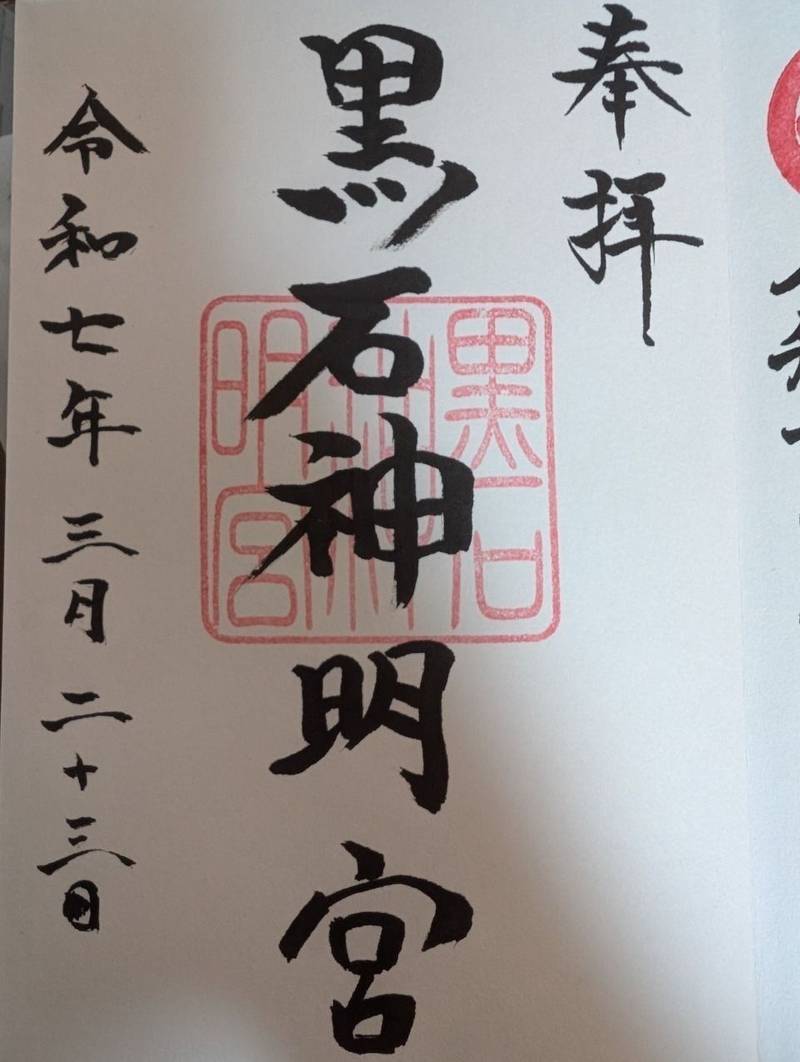 奉拝
黒石神明宮
黒石
神
明宮
令和七年三月二十三日